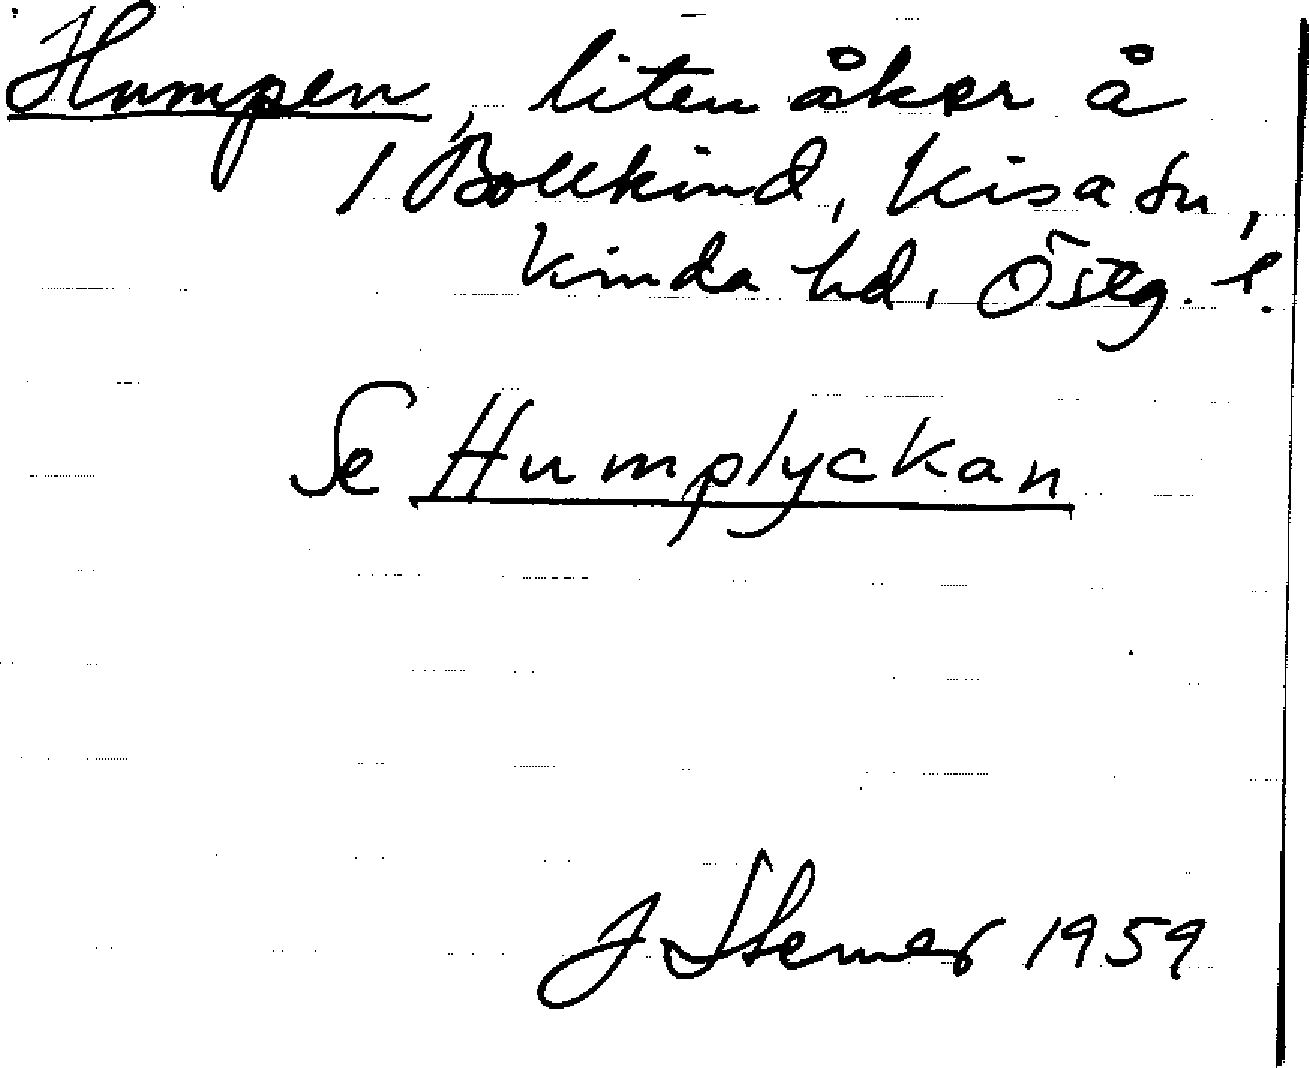 Humpen, liten åker å
1 Bollkind, Kisa sn,
Kinda hd, Östg. l.
Se Humplyckan
J 1959